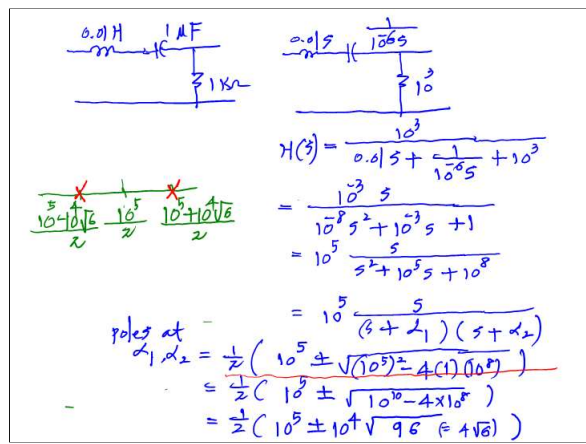 0.01H 1 μF
1KΩ
0.01S 1/10⁻⁶S
10³
H(s) = 10³ / (0.01S + 1/10⁻⁶S + 10³)
= 10⁻³ S / (10⁻⁸ S² + 10⁻³ S + 1)
= 10⁵ S / (S² + 10⁵ S + 10⁸)
= 10⁵ S / ((S + α₁)(S + α₂))
(10⁵-10⁴√6)/2 10⁵/2 (10⁵+10⁴√6)/2
poles at
α₁, α₂ = 1/2 ( 10⁵ ± √((10⁵)² - 4(1)(10⁸)) )
= 1/2 ( 10⁵ ± √(10¹⁰ - 4×10⁸) )
= 1/2 ( 10⁵ ± 10⁴ √96 (= 4√6) )